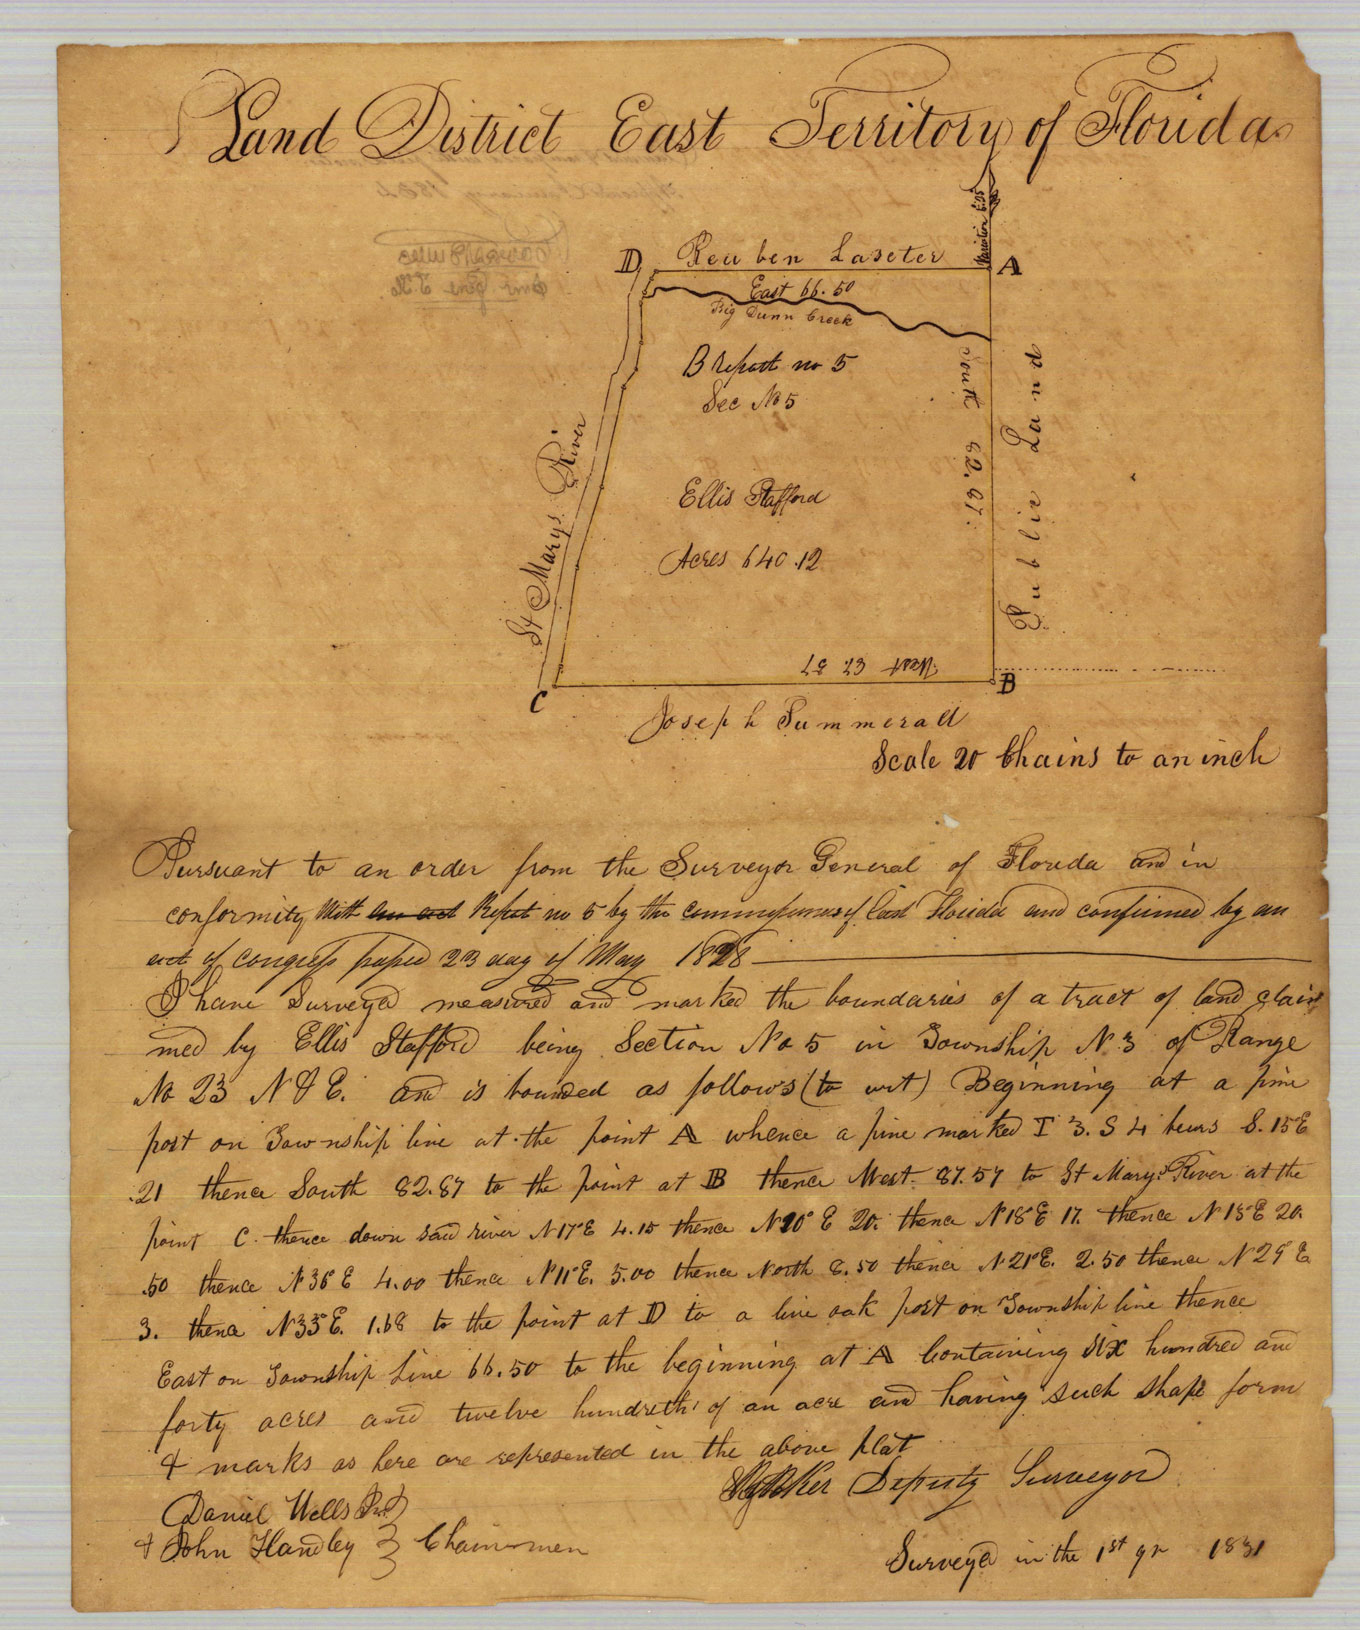 Land District East Territory of Florida
Variation 6.05
D Reuben Laseter A
East 66.50
Big Dunn Creek
B Report no 5
Sec No 5
South 82.87.
Public Land
St Marys River
Ellis Stafford
Acres 640.12
West 87.57
C B
Joseph Summerall
Scale 20 Chains to an inch
Pursuant to an order from the Surveyor General of Florida and in
conformity With an act Report no 5 by the commissioners of East Florida and confirmed by an
act of congress passed 23 day of May 1828
I have Surveyed measured and marked the boundaries of a tract of land claim
med by Ellis Stafford being Section No 5 in Township N 3 of Range
No 23 N & E. and is bounded as follows (to wit) Beginning at a pine
post on Township line at the point A whence a pine marked T 3. S 4 bears S. 15°E
.21 thence South 82.87 to the point at B thence West. 87.57 to St Mary's River at the
point C. thence down said river N17°E 4.15 thence N20°E 20. thence N18°E 17. thence N15°E 20.
.50 thence N36°E 4.00 thence N11°E. 5.00 thence North 8.50 thence N21°E. 2.50 thence N29°E
3. thence N33°E. 1.68 to the point at D to a live oak post on Township line thence
East on Township Line 66.50 to the beginning at A Containing six hundred and
forty acres and twelve hundreths of an acre and having such shape form
& marks as here are represented in the above plat
Deputy Surveyor
Daniel Wells
& John Handley } Chainmen
Surveyed in the 1st qr 1831